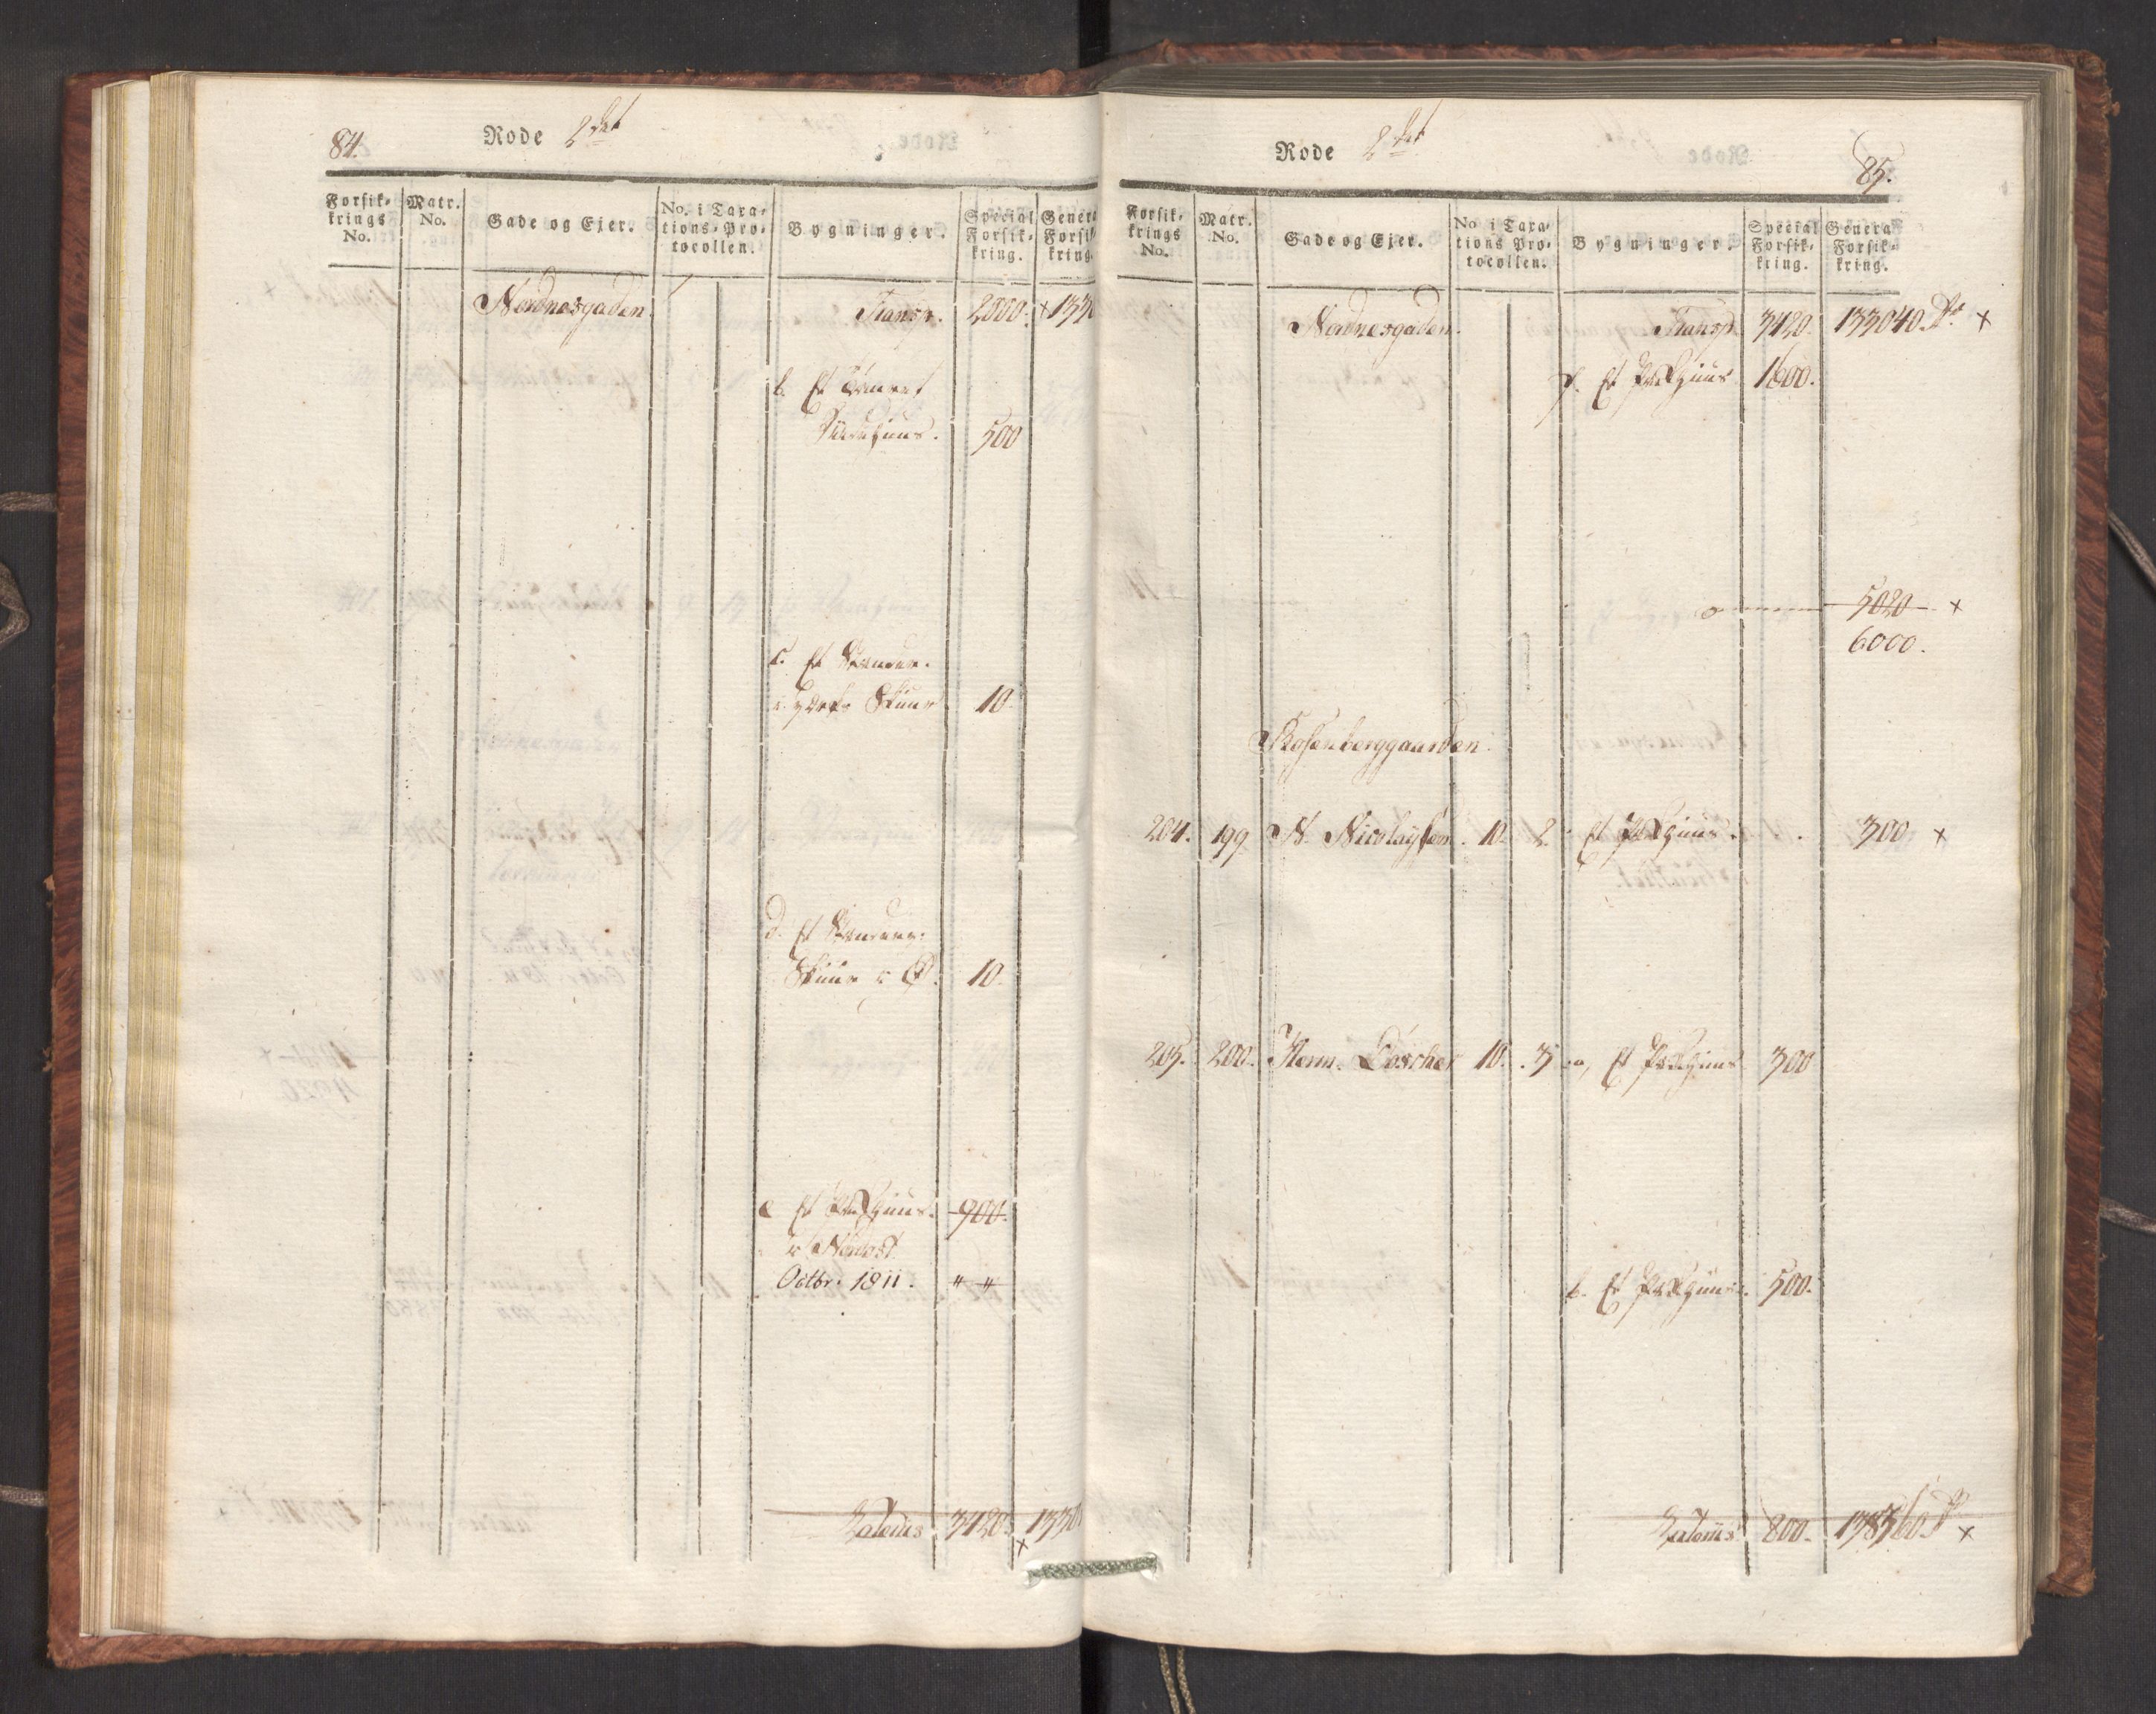 84.
Rode 2det
Forsik-
krings
No.
Matr.
No.
Gade og Ejer.
No. i Taxa-
tions-Pro-
tocollen.
Bygninger.
Special
Forsik-
kring.
Genera
Forsik
kring.
Nordnesgaden.
Transp. 2000. x 1330
b. Et
500
c. Et
Skuur 10.
d. Et
Skuur 10.
e Et 900.
Octbr. 1811. " "
Lateris 3420. 1330
x
Rode 2det
85.
Forsik-
krings
No.
Matr.
No.
Gade og Ejer.
No i Taxa-
tions Pro-
tocollen.
Bygninger.
Special
Forsik-
kring.
Genera
Forsik-
kring.
Nordnesgaden. Transp 3420. 133040 x
f. Et 1600.
5020 x
6000.
Rosenberggaarden.
204. 199 N. Nicolaysen. 10. 2. Et 300 x
205. 200. Herm. Döscher 10. 3 a, Et 300
b. Et 500.
Lateris 800. 138360 x